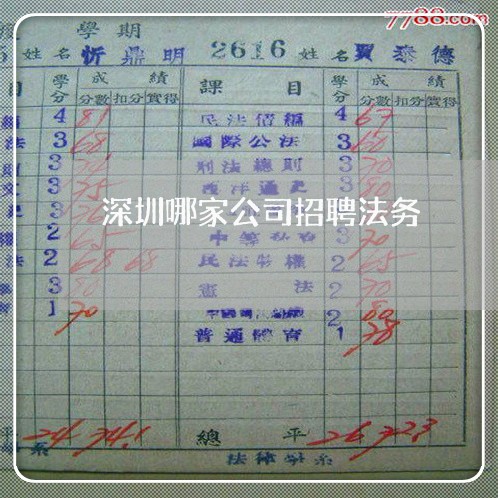 7788.com
學期
姓名 忻鼎明 2616 姓名 賈泰德
目 學分 成績 課目 學分 成績
分數 扣分 實得 分數 扣分 實得
4 81 民法債編 4 67
法 3 68 國際公法 3 60
3 刑法總則 3 70
3 75 西洋通史 3 80
深圳哪家公司招聘法务
2 65 3 70
法 2 68 68 民法物權 2 65
3 80 憲法 2 70
1 70 2 80
普通體育 1 78
平 24 74.1 總平 26 72.3
系 法律學系